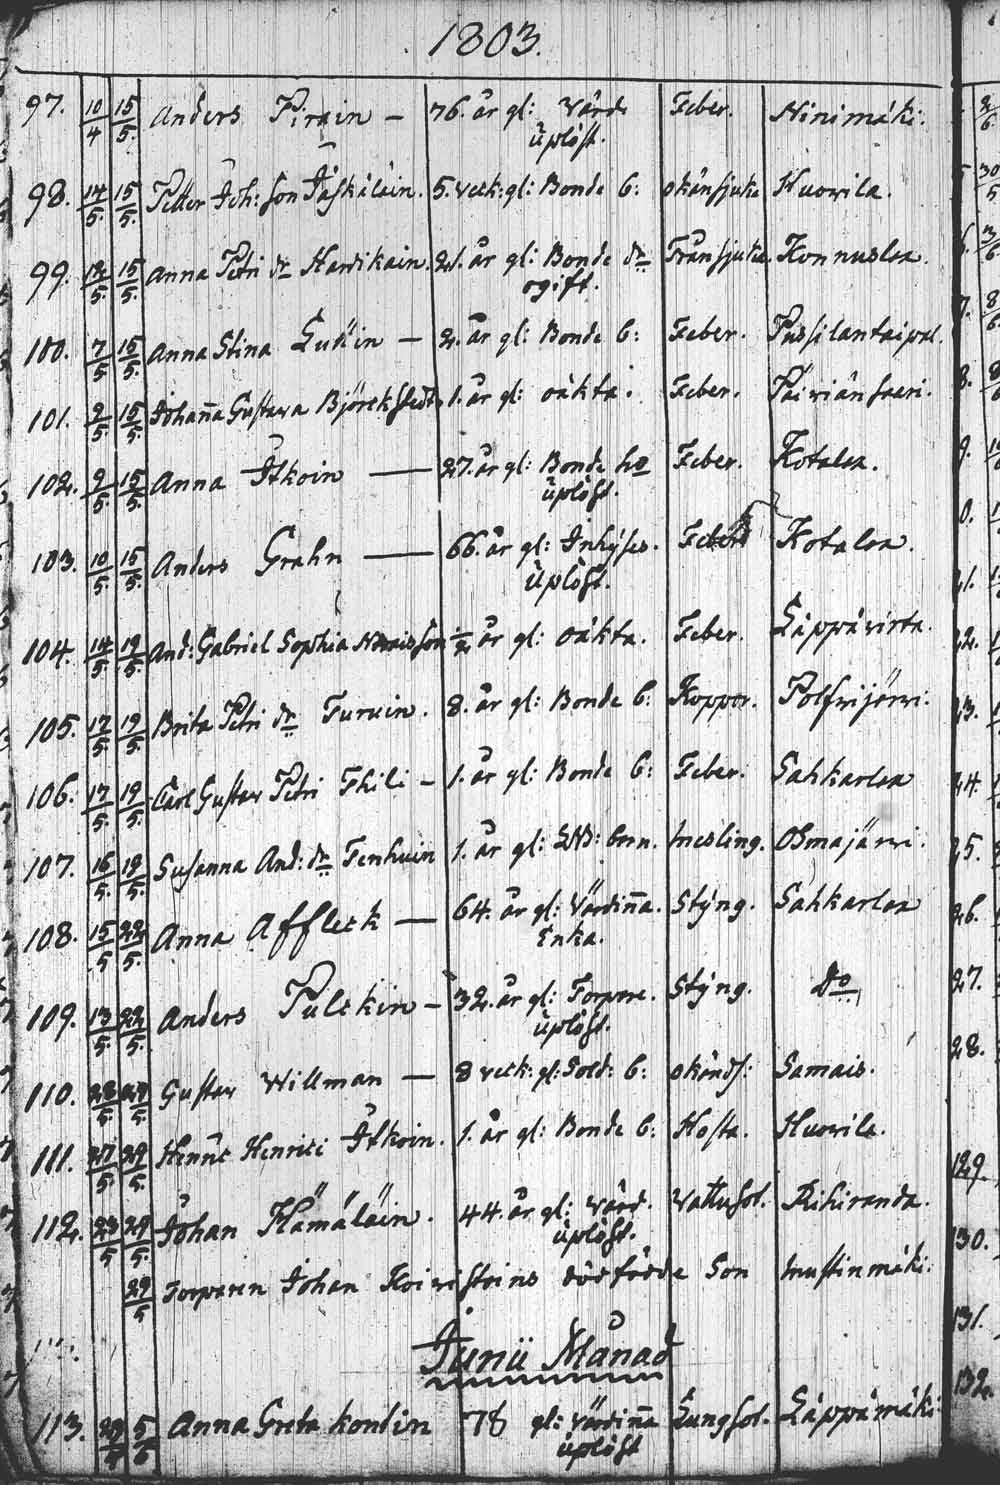 1803.
97. 10/4 15/5. Anders Pirain — 76. år gl: Värd Feber. Ninimäki.
uplöst.
98. 14/5. 15/5. Petter Joh: Son Jäskäläin. 5. veck: gl: Bonde b: okänsjuka Huovila.
99. 12/5. 15/5. Anna Petri dr Hardikain. 21. år gl: Bonde dr Trånsjuka. Konnuslax.
ogift.
100. 7/5 15/5. Anna Stina — 2. år gl: Bonde b: Feber.
101. 9/5. 15/5. Johanna Gustava Björckstedt 1. år gl: oäkta. Feber. Päiviänsaari.
102. 9/5. 15/5. Anna Itkoin — 27. år gl: Bonde ho Feber. Kotalax.
uplöst.
103. 10/5. 15/5. Anders Grahn — 66. år gl: Inhyses. Feber Kotalax.
uplöst.
104. 14/5 19/5. And: Gabriel Sophia son ½ år gl: oäkta. Feber. Läppävirta.
105. 12/5. 19/5. Brita Petri dr Turuin. 8. år gl: Bonde b: Koppor. Polfvijärvi.
106. 17/5. 19/5. Carl Gustav Petri Thili — 1. år gl: Bonde b: Feber. Sahkarlax
107. 16/5. 19/5. Susanna And: dr Tenhuin 1. år gl: barn. Mesling. Osmajärvi.
108. 15/5 22/5. Anna Affleck — 64. år gl: Värdinna. Styng. Sahkarlax
Enka.
109. 13/5. 22/5. Anders Pulckin — 32. år gl: Torpare. Styng. do
uplöst.
110. 28/5. /5. Gustav Willman — 8 veck: gl: Sold: b: okänds: Samais.
111. 27/5. 29/5. Henric Henrici Itkoin. 1. år gl: Bonde b: Hosta. Huovila.
112. 23/5 29/5. Johan Hämäläin. 44. år gl: värd. Vattusot. Rihiranda.
uplöst.
29/5 Torparen Johan Koivistoins dödfödde Son Mustinmäki.
Junii Månad
113. 5/6 Anna Greta kontin 78 gl: värdinna Lungsot. Läppämäki.
uplöst
129.
130.
131.
132.